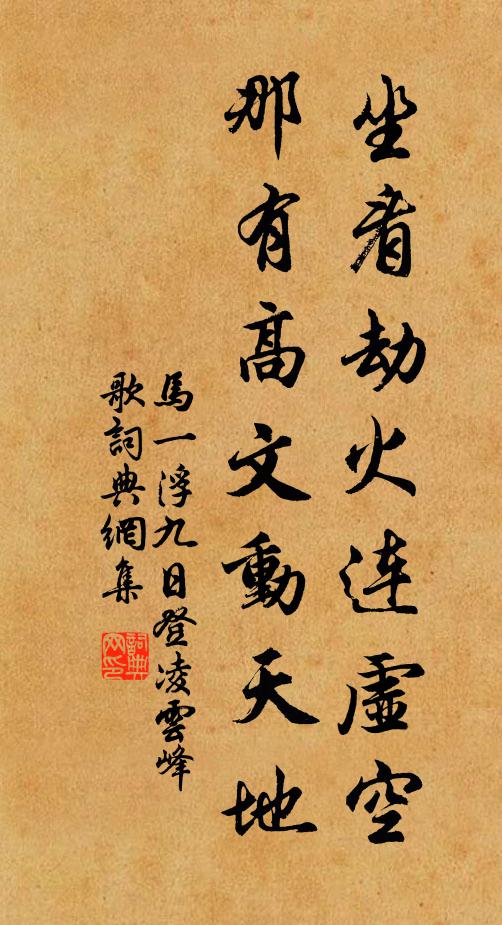 坐看劫火连虛空
那有高文動天地
馬一浮九日登凌雲峰
歌詞典網集
詞典
网印